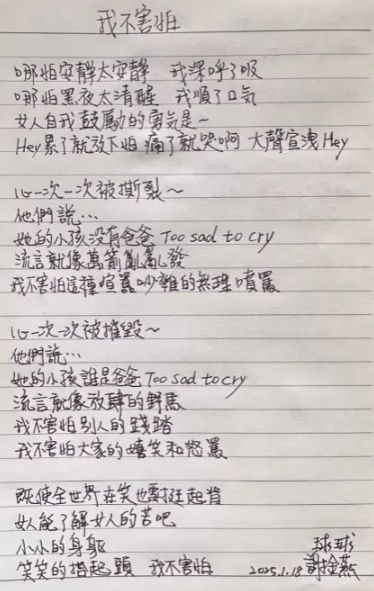 我不害怕
哪怕安靜太安靜 我深呼了吸
哪怕黑夜太清醒 我順了口気
女人自我鼓勵的勇気是一
Hey累了就放下怕 痛了就哭啊 大聲宣洩Hey
心一次一次被撕裂～
他們說…
她的小孩沒有爸爸 Too sad to cry
流言就像萬箭亂亂發
我不害怕這種喧囂吵雜的無理噴罵
心一次一次被摧毀～
他們說…
她的小孩誰是爸爸 Too sad to cry
流言就像放肆的野馬
我不害怕別人的踐踏
我不害怕大家的嬉笑和怒罵
既使全世界在笑也要挺起背
女人能了解女人的苦吧
小小的身軀 球球
笑笑的抬起頭 我不害怕 2025.1.18 謝金燕